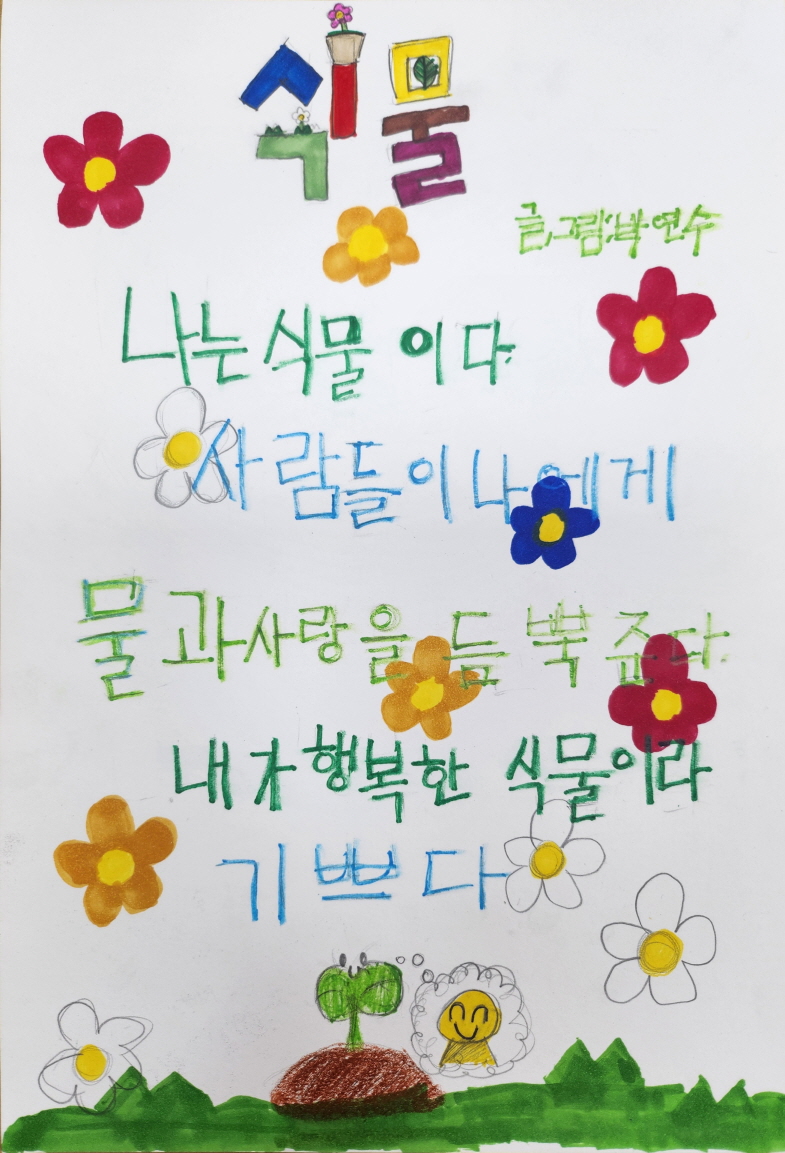 식물
글,그림:박연수
나는 식물 이다.
사람들이 나에게
물과 사랑을 듬뿍 준다.
내가 행복한 식물이라
기쁘다